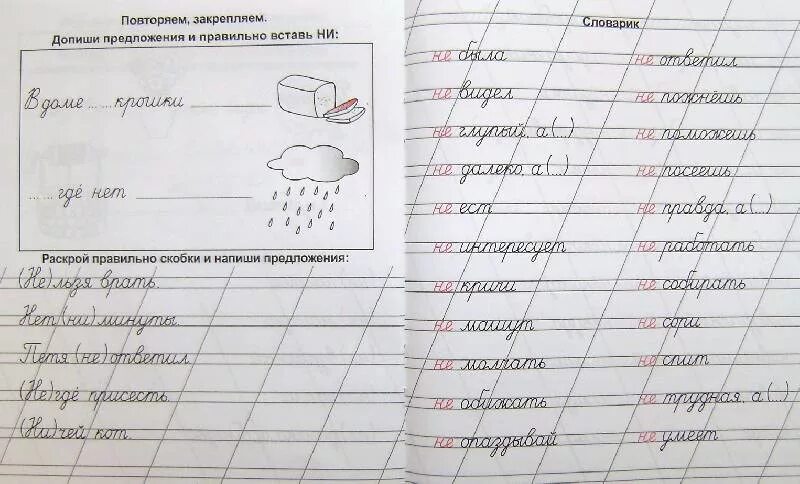 Повторяем, закрепляем.
Допиши предложения и правильно вставь НИ:
В доме ...... крошки
...... где нет
Раскрой правильно скобки и напиши предложения:
(Не)льзя врать.
Нет (ни) минуты.
Петя (не) ответил.
(Не)где присесть.
(Ни)чей кот.
Словарик
не была
не видел
не глупый, а (...)
не далеко, а (...)
не ест
не интересует
не кричи
не машут
не молчать
не обижать
не опаздывай
не ответил
не пожнёшь
не поможешь
не посеешь
не правда, а (...)
не работать
не собирать
не сори
не спит
не трудная, а (...)
не умеет